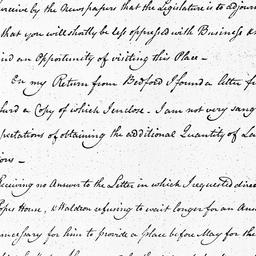 ceive by the Newspapers that the Legislature is to adjour
that you will shortly be less oppressed with Business &
ind an Opportunity of visiting this Place—
On my Return from Bedford I found a letter fr
ford a Copy of which I enclose. I am not very sang
pectations of obtaining the additional Quantity of La
ions—
eceiving no Answer to the Letter in which I requested direc
opes House, & Waldron refusing to wait longer for an Ans
necessary for him to provide a place before May for the